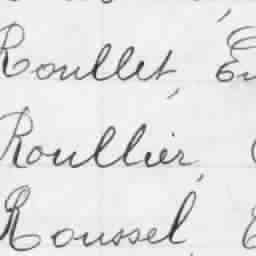 Roullet, Eu
Roullier,
Roussel,